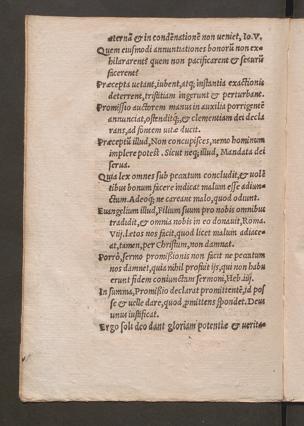 æternã & in condẽnationẽ non ueniet, Io. V.
Quem eiusmodi annuntiationes bonorũ non ex-
hilararent? quem non pacificarent & securũ
facerent?
Præcepta uetant, iubent, atq; instantia exactionis
deterrent, tristitiam ingerunt & perturbant.
Promissio auctorem manus in auxilia porrigentẽ
annunciat, ostenditq;, & clementiam dei decla
rans, ad fontem uitæ ducit.
Præceptũ illud, Non concupisces, nemo hominum
implere potest. Sicut neq; illud, Mandata dei
serua.
Quia lex omnes sub peccatum concludit, & uolẽ
tibus bonum facere indicat malum esse adiun-
ctum. Adeoq; ne careant malo, quod odiunt.
Euangelium illud, Filium suum pro nobis omnibus
tradidit, & omnia nobis in eo donauit, Roma.
Viij. Letos nos facit, quod licet malum adiace-
at, tamen, per Christum, non damnat.
Porrò, sermo promissionis non facit ne peccatum
nos damnet, quia nihil profuit ijs, qui non habu
erunt fidem coniunctam sermoni, Heb. iiij.
In summa, Promissio declarat promittentẽ, id pos
se & uelle dare, quod promittens spondet. Deus
unus iustificat.
Ergo soli deo dant gloriam potentiæ & verita-